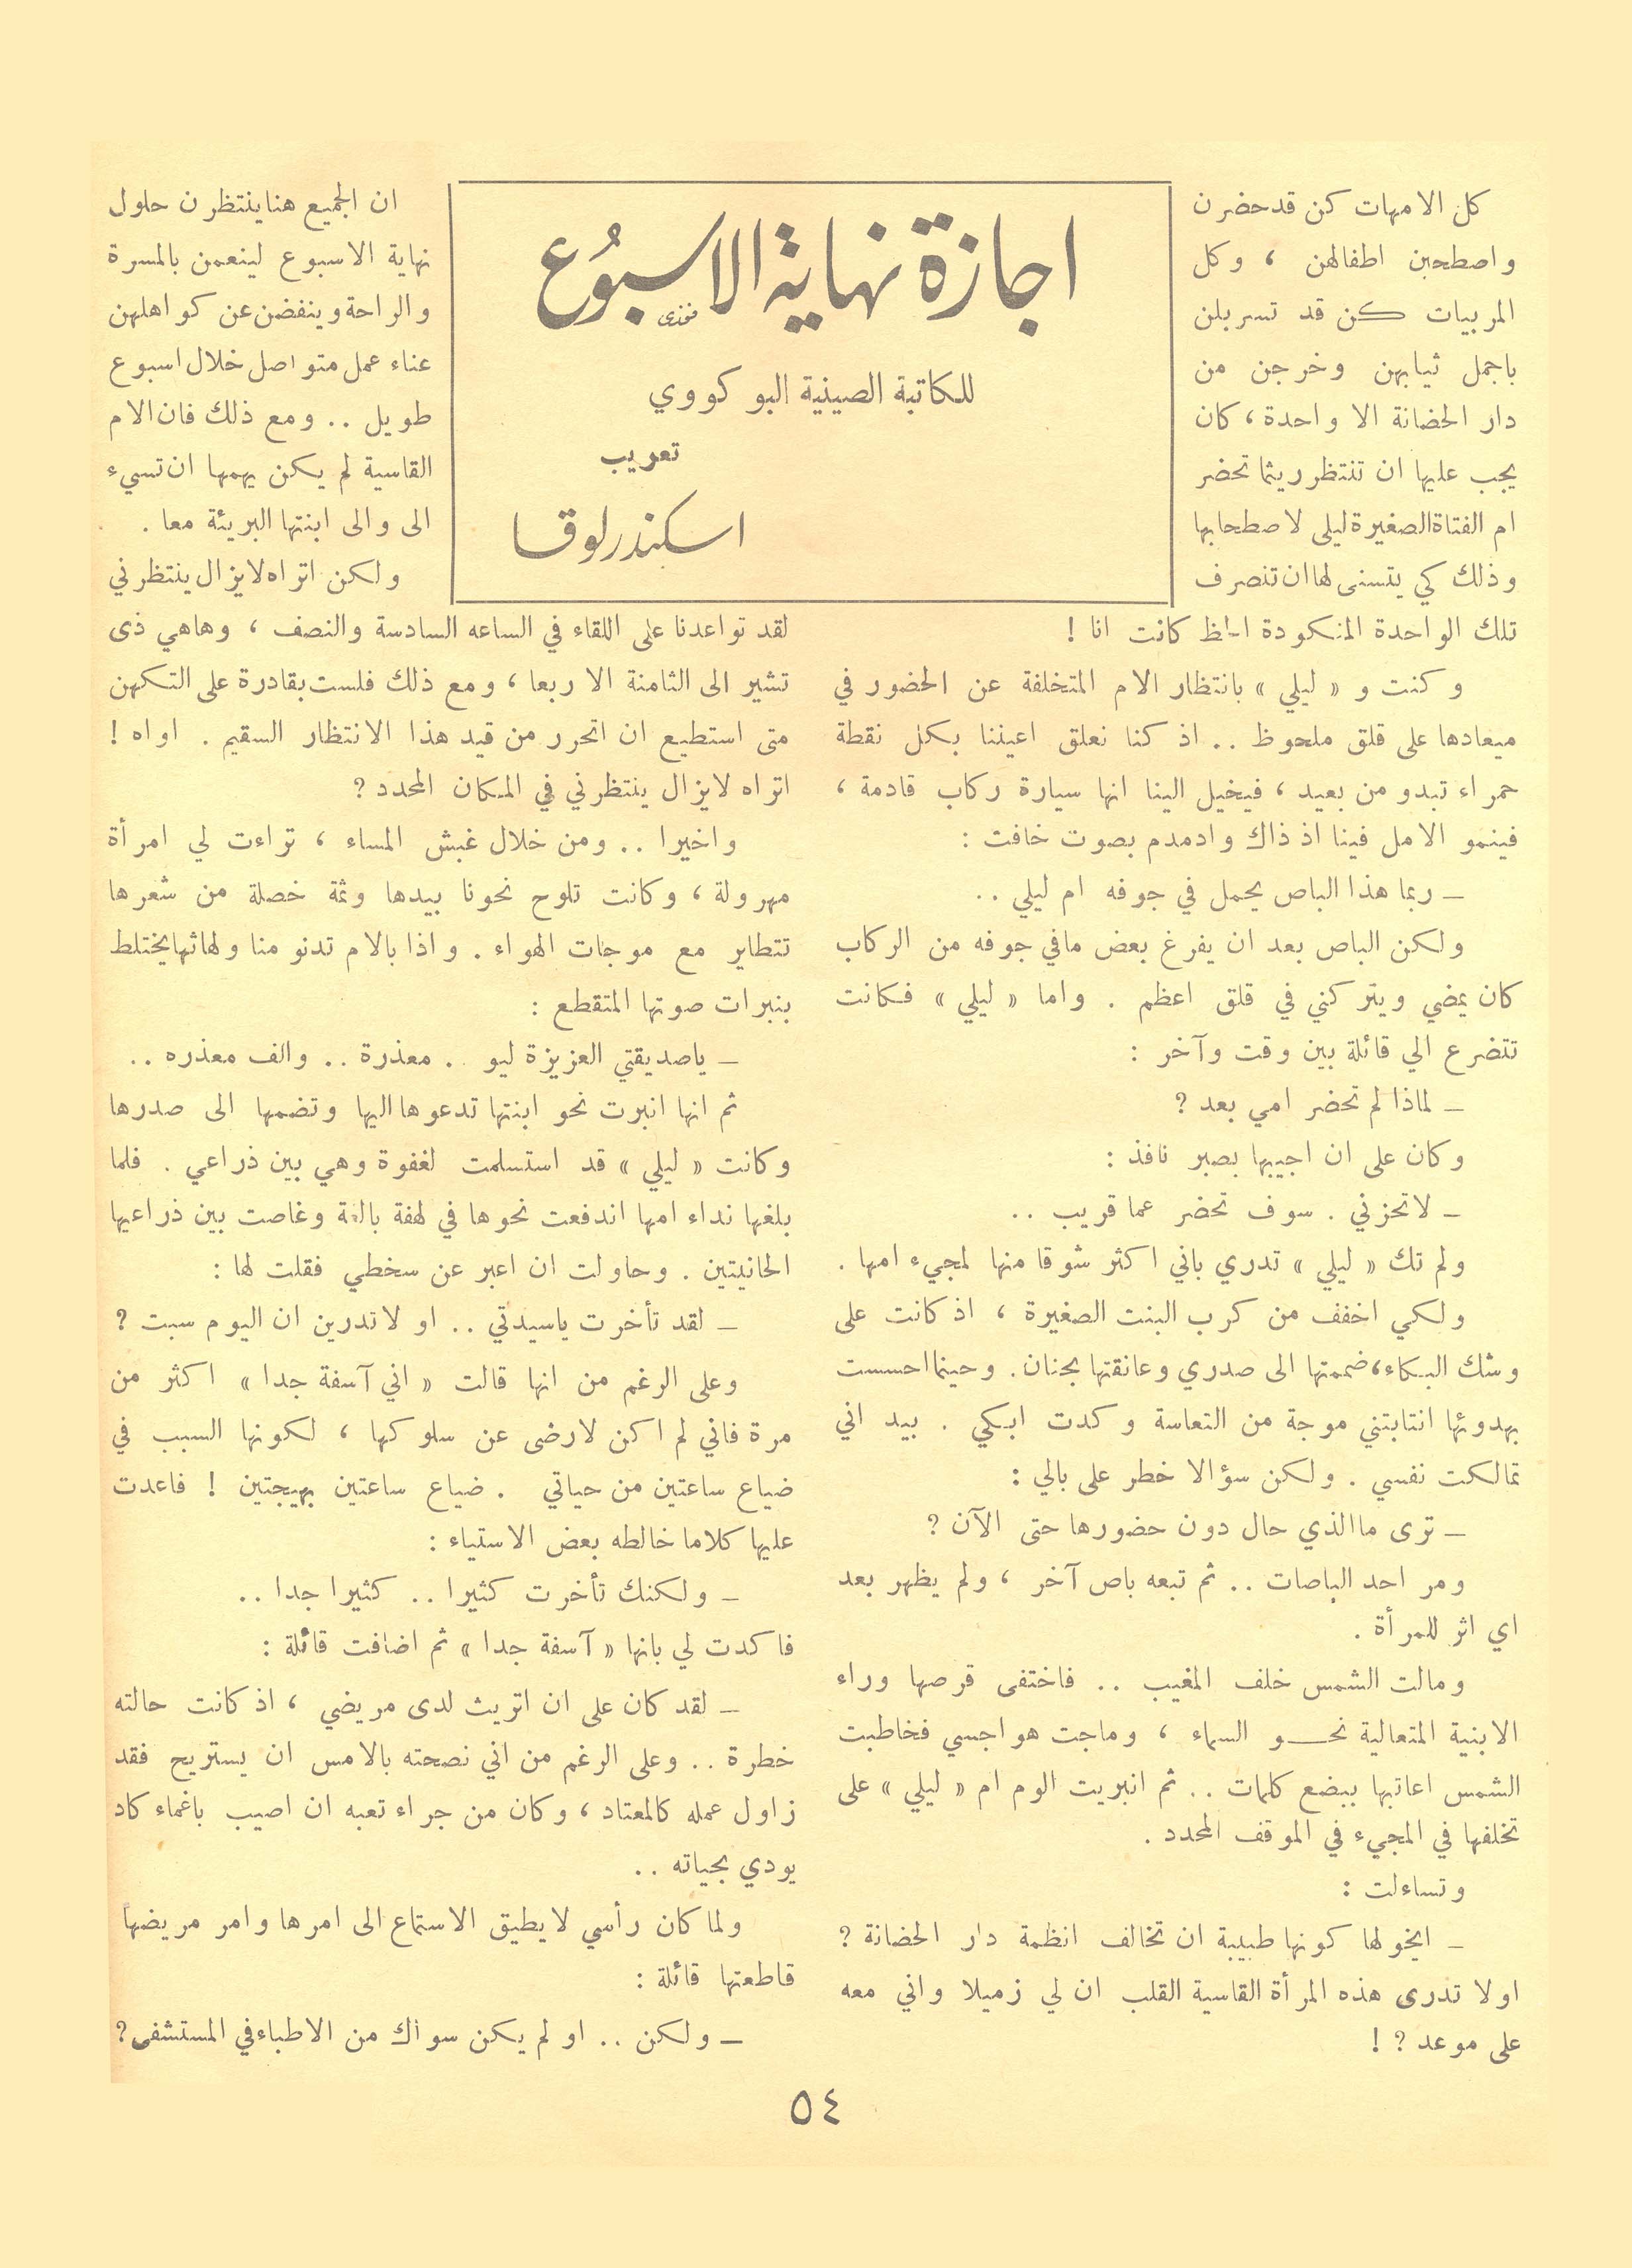 اجازة نهاية الاسبوُع
فخذي
للكاتبة الصينية اليو كووي
تعريب
اسكندر لوقا
كل الامهات كن قد حضرن
واصطحبن اطفالهن ، وكل
المربيات كن قد تسربلن
باجمل ثيابهن وخرجن من
دار الحضانة الا واحدة ، كان
يجب عليها ان تنتظر ريثما تحضر
ام الفتاة الصغيرة ليلى لاصطحابها
وذلك كي يتسنى لها ان تنصرف
تلك الواحدة المنكودة الحظ كانت انا !
وكنت و « ليلي » بانتظار الام المتخلفة عن الحضور في
ميعادها على قلق ملحوظ .. اذ كنا نعلق اعيننا بكل نقطة
حمراء تبدو من بعيد ، فيخيل الينا انها سيارة ركاب قادمة ،
فينمو الامل فينا اذ ذاك وادمدم بصوت خافت :
ـ ربما هذا الباص يحمل في جوفه ام ليلي ..
ولكن الباص بعد ان يفرغ بعض مافي جوفه من الركاب
كان يمضي ويتركني في قلق اعظم . واما « ليلي » فكانت
تتضرع الي قائلة بين وقت وآخر :
ـ لماذا لم تحضر امي بعد ؟
وكان على ان اجيبها بصبر نافذ :
ـ لاتحزني . سوف تحضر عما قريب ..
ولم تك « ليلي » تدري باني اكثر شوقا منها لمجيء امها .
ولكي اخفف من كرب البنت الصغيرة ، اذ كانت على
وشك البكاء، ضممتها الى صدري وعانقتها بحنان. وحينما احسست
بهدوئها انتابتني موجة من التعاسة وكدت ابكي . بيد اني
تمالكت نفسي . ولكن سؤالا خطر على بالي :
ـ ترى ما الذي حال دون حضورها حتى الآن ؟
ومر احد الباصات .. ثم تبعه باص آخر ، ولم يظهر بعد
اي اثر للمرأة .
ومالت الشمس خلف المغيب .. فاختفى قرصها وراء
الابنية المتعالية نحـــو السماء ، وماجت هواجسي فخاطبت
الشمس اعاتبها ببضع كلمات .. ثم انبريت الوم ام « ليلي » على
تخلفها في المجيء في الموقف المحدد .
وتساءلت :
ـ ايخولها كونها طبيبة ان تخالف انظمة دار الحضانة ؟
اولا تدرى هذه المرأة القاسية القلب ان لي زميلا واني معه
على موعد ؟ !
ان الجميع هنا ينتظرن حلول
نهاية الاسبوع لينعمن بالمسرة
والراحة وينفضن عن كواهلهن
عناء عمل متواصل خلال اسبوع
طويل .. ومع ذلك فان الام
القاسية لم يكن يهمها ان تسيء
الى والى ابنتها البريئة معا .
ولكن اتراه لايزال ينتظرني
لقد تواعدنا على اللقاء في الساعه السادسة والنصف ، وهاهي ذى
تشير الى الثامنة الا ربعا ، ومع ذلك فلست بقادرة على التكهن
متى استطيع ان اتحرر من قيد هذا الانتظار السقيم . اواه !
اتراه لايزال ينتظرني في المكان المحدد ؟
واخيرا .. ومن خلال غبش المساء ، تراءت لي امرأة
مهرولة ، وكانت تلوح نحونا بيدها وثمة خصلة من شعرها
تتطاير مع موجات الهواء . واذا بالام تدنو منا ولهاثها يختلط
بنبرات صوتها المتقطع :
ـ ياصديقتي العزيزة ليو .. معذرة .. والف معذره ..
ثم انها انبرت نحو ابنتها تدعوها اليها وتضمها الى صدرها
وكانت « ليلي » قد استسلمت لغفوة وهي بين ذراعي . فلما
بلغها نداء امها اندفعت نحوها في لهفة بالغة وغاصت بين ذراعيها
الحانيتين . وحاولت ان اعبر عن سخطي فقلت لها :
ـ لقد تأخرت ياسيدتي .. او لاتدرين ان اليوم سبت ؟
وعلى الرغم من انها قالت « اني آسفة جدا » اكثر من
مرة فاني لم اكن لارضى عن سلوكها ، لكونها السبب في
ضياع ساعتين من حياتي . ضياع ساعتين بهيجتين ! فاعدت
عليها كلاما خالطه بعض الاستياء :
ـ ولكنك تأخرت كثيرا .. كثيرا جدا ..
فاكدت لي بانها « آسفة جدا » ثم اضافت قائلة :
ـ لقد كان على ان اتريث لدى مريضي ، اذ كانت حالته
خطرة .. وعلى الرغم من اني نصحته بالامس ان يستريح فقد
زاول عمله كالمعتاد ، وكان من جراء تعبه ان اصيب باغماء كاد
يودي بحياته ..
ولما كان رأسي لايطيق الاستماع الى امرها وامر مريضها
قاطعتها قائلة :
ـ ولكن .. او لم يكن سواك من الاطباء في المستشفى؟
٥٤